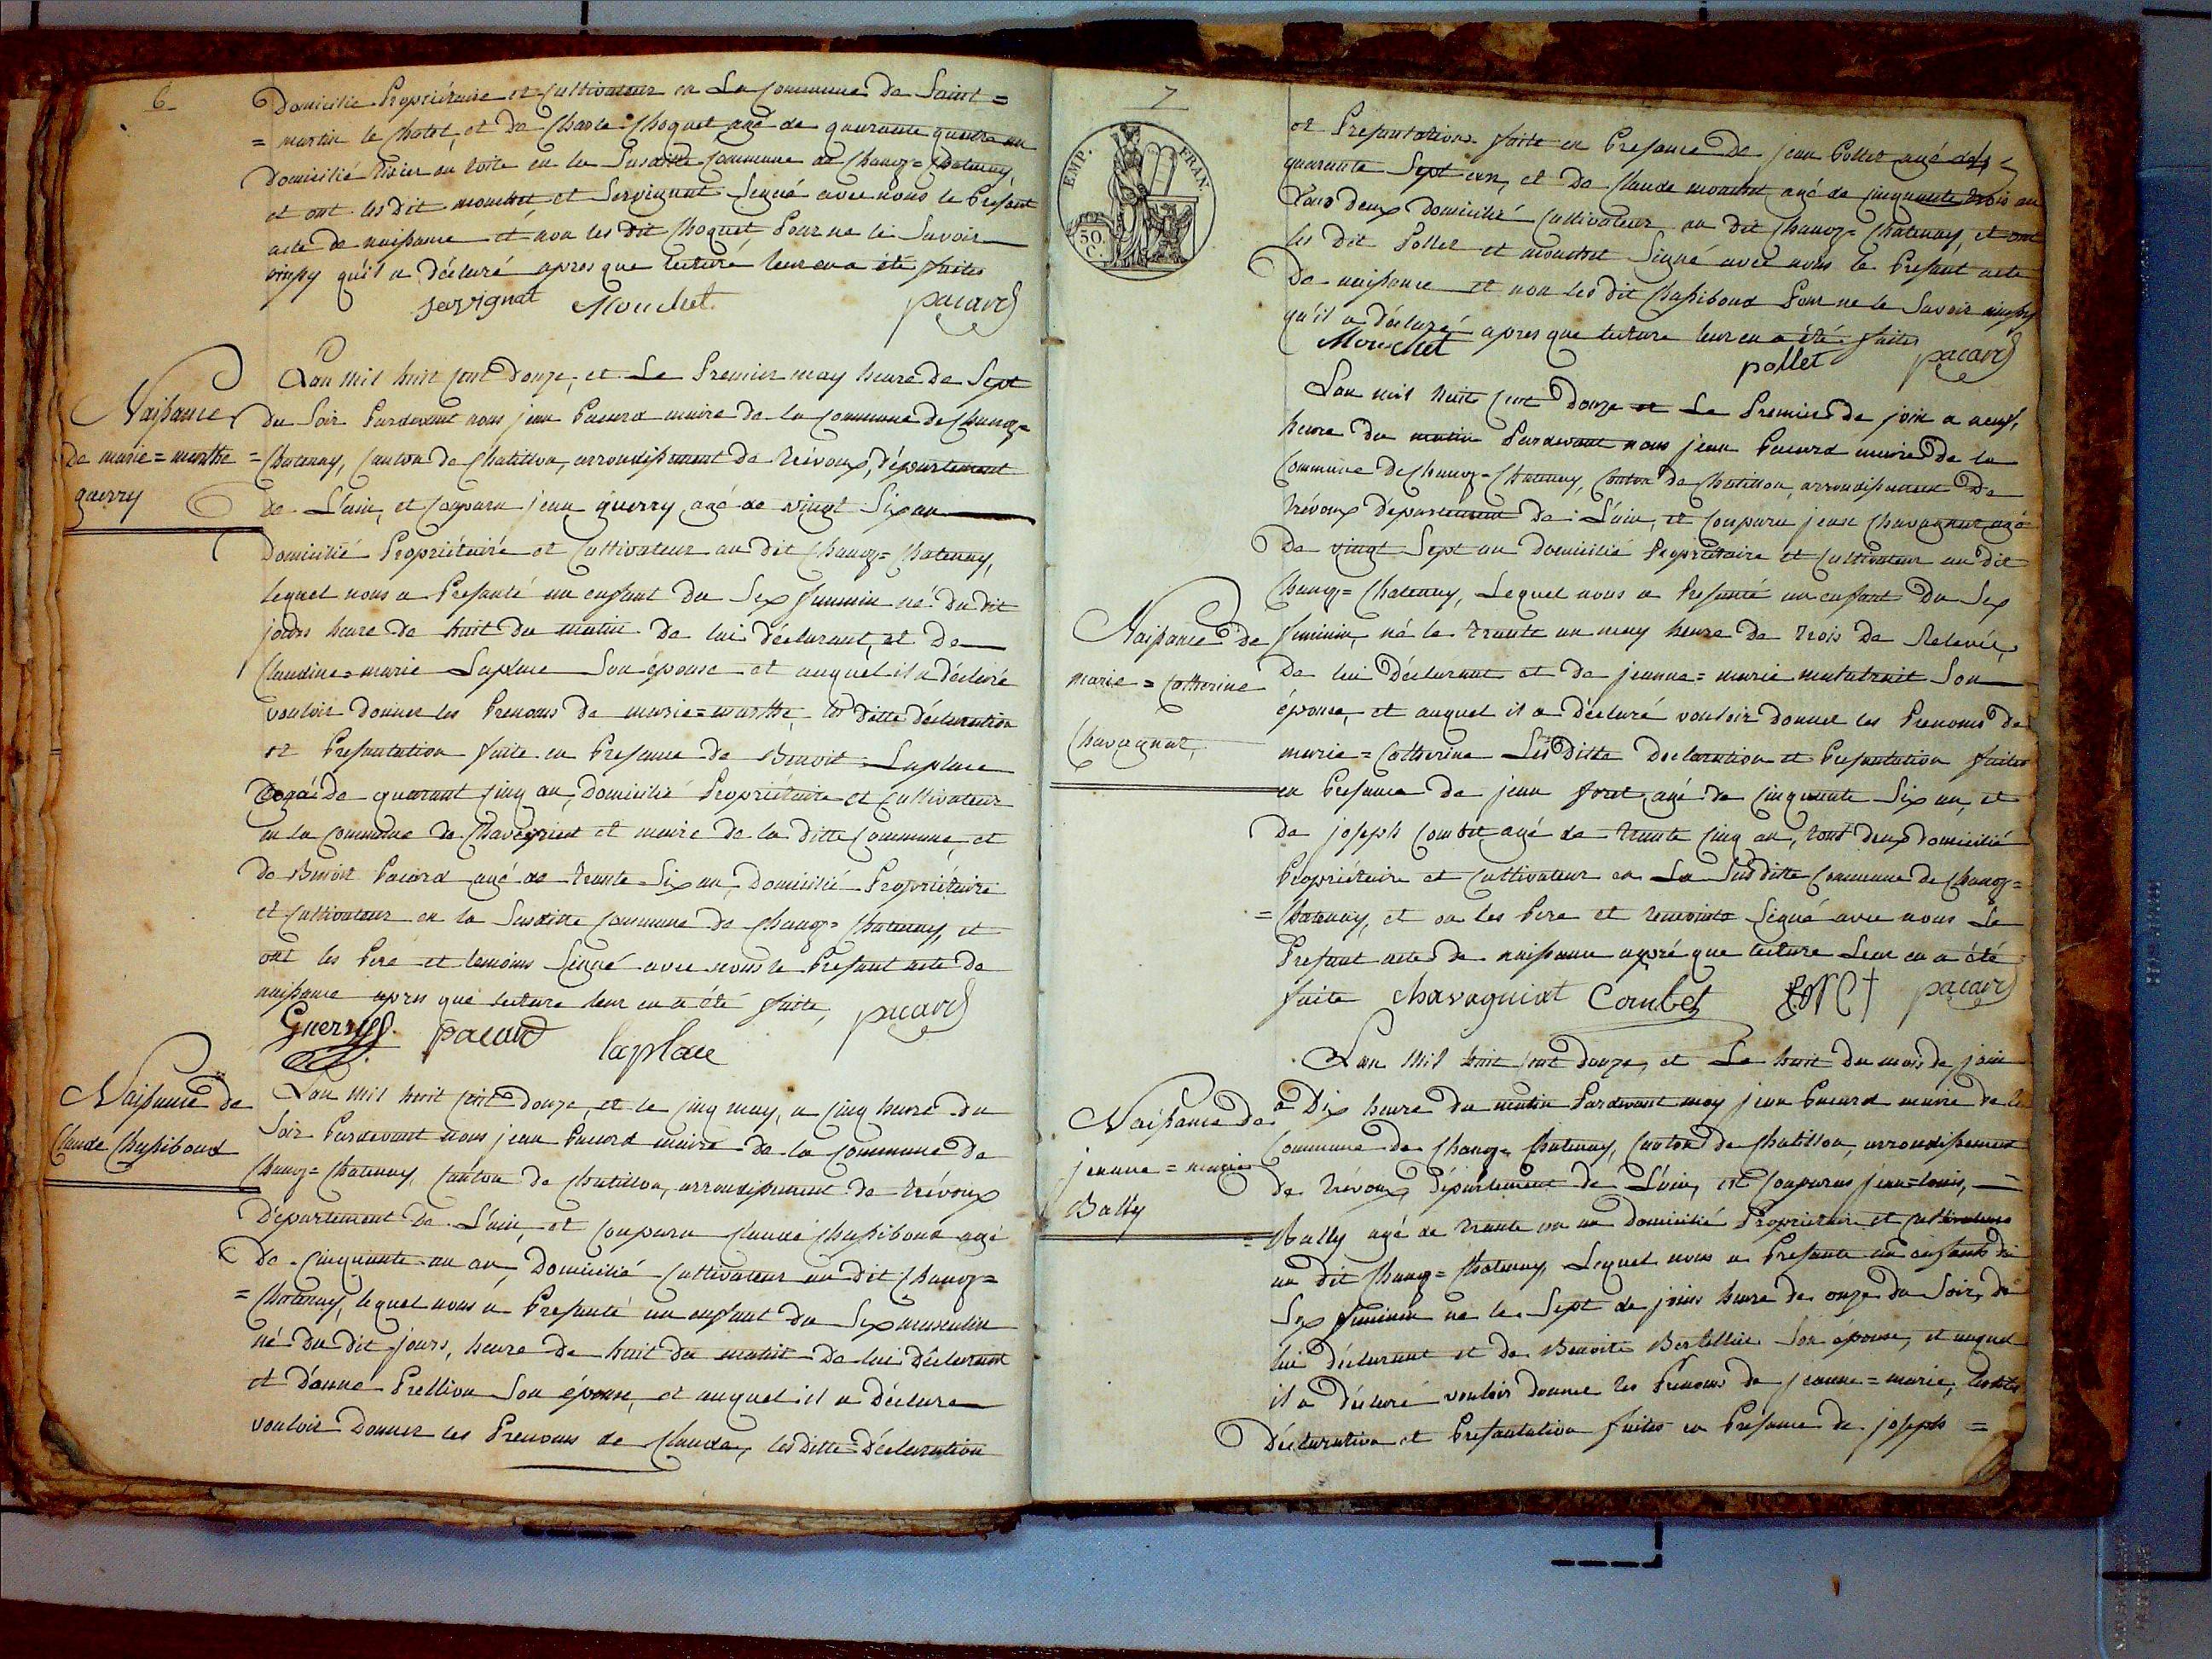 6
Domicilié Propriétaire et Cultivateur en La Commune de Saint =
= martin le Chatel, et de Charle Choquet agé de quarante quatre an
Domicilié tixier en toile en la Susditte Commune de Chanoz = Chatenay,
et ont les dit mouchet, et Servignat Signé avec nous le Presant
acte de naissance et non les dit Choquet Pour ne le Savoir
ainsy qu'il a Déclaré apres que lecture leur en a été faites
servignat Mouchet pacard
Naissance
de marie = marthe
guerry
Lan Mil huit Cent Douze, et Le Premier may heure de Sept
du Soir Pardevant nous jean Pacard maire de la Commune de Chanoz =
= Chatenay, Canton de Chatillon, arrondissement de trévoux, département
de L'ain, et Comparu jean guerry agé de vingt Six an
Domicilié Propriétaire et Cultivateur au dit Chanoz = Chatenay,
lequel nous a Presanté un enfant du Sex feminin né du dit
jours heure de huit du matin de lui déclarant, et de
Claudine = marie Laplace Son épouse et auquel il a déclaré
vouloir donner les Prenoms de marie = marthe, les ditte déclaration
et Presantation faite en Presance de Benoit Laplace
agé de quarant cinq an, domicilié Propriétaire et Cultivateur
en la Commune de Chaveyriat et maire de la ditte Commune, et
de Benoit Pacard agé de trante Six an, Domicilié Propriétaire
et Cultivateur en la Susditte Commune de Chanoz = Chatenay, et
ont les Pere et temoins Signé avec nous le Presant acte de
naissance apres que lecture leur en a été faite,
Guerry pacard laplace pacard
Naissance de
Claude Chassiboud
Lan Mil huit Cent Douze, et le cinq may, a cinq heure du
Soir Pardevant nous jean Pacard maire de la Commune de
Chanoz = Chatenay, Canton de Chatillon, arrondissement de trévoux
Département de L'ain, et Comparu Claude Chassiboud agé
de Cinquante un an, Domicilié Cultivateur au dit Chanoz =
= Chatenay, lequel nous a Presanté un enfant du Sex masculin
né du dit jours, heure de huit du matin de lui Déclarant
et d'anne Prellion Son épouse, et auquel il a Déclare
vouloir Donner les Prenoms de Claude, les ditte Déclaration
7
EMP. FRAN.
50.
C.
et Presantation faite en Presance de jean Pollet agé de
quarante Sept an, et de Claude mouchet agé de cinquante trois an
tous deux Domicilié Cultivateur au dit Chanoz = Chatenay, et ont
les dit Pollet et mouchet Signé avec nous le Presant acte
de naissance et non les dit Chassiboud Pour ne le Savoir ainsy
qu'il a Déclaré apres que lecture leur en a été faites
Mouchet pollet pacard
Naissance de
marie = Catherine
Chavagnat,
Lan mil huit Cent Douze et Le Premier de join a neuf,
heure du matin Pardevant nous jean Pacard maire de la
Commune de Chanoz = Chatenay, Canton de Chatillon, arrondissement de
trévoux département de L'ain, et Comparu jean Chavagnat agé
de vingt Sept an domicilié Propriétaire et Cultivateur au dit
Chanoz = Chatenay, Lequel nous a Presanté un enfant Du Sex
feminin, né le trante un may heure de trois de Relevée,
de lui Déclarant et de jeanne = marie Son
épouse, et auquel il a déclaré vouloir donner les Prenoms de
marie = Catherine Les Ditte Declaration et Presantation faites
en Presance de jean foret agé de cinquante Six an, et
de joseph Combet agé de trante cinq an, tout deux domicilié
Propriétaire et Cultivateur en La Susditte Commune de Chanoz =
= Chatenay, et on les Pere et temoints Signé avec nous Le
Presant acte de naissance apré que lecture Leur en a été
faite chavagniat Combet pacard
Naissance de
jeanne = marie
Bally
Lan Mil huit Cent Douze, et Le huit du mois de join
a Dix heure du matin Pardevant moy jean Pacard maire de la
Commune de Chanoz = Chatenay, Canton de Chatillon, arrondissement
de trévoux, Département de L'ain, et Comparus jean = louis,
= Bally agé de trante un an domicilié Propriétaire et Cultivateur
au dit Chanoz = Chatenay, Lequel nous a Presante un enfant du
Sex feminin ne le Sept de joins heure de onze du Soir, de
lui déclarant et de Benoite Son épouse, et auquel
il a déclaré vouloir donner les Prenoms de jeanne = marie,
Déclaration et Presantation faites en Presance de joseph =